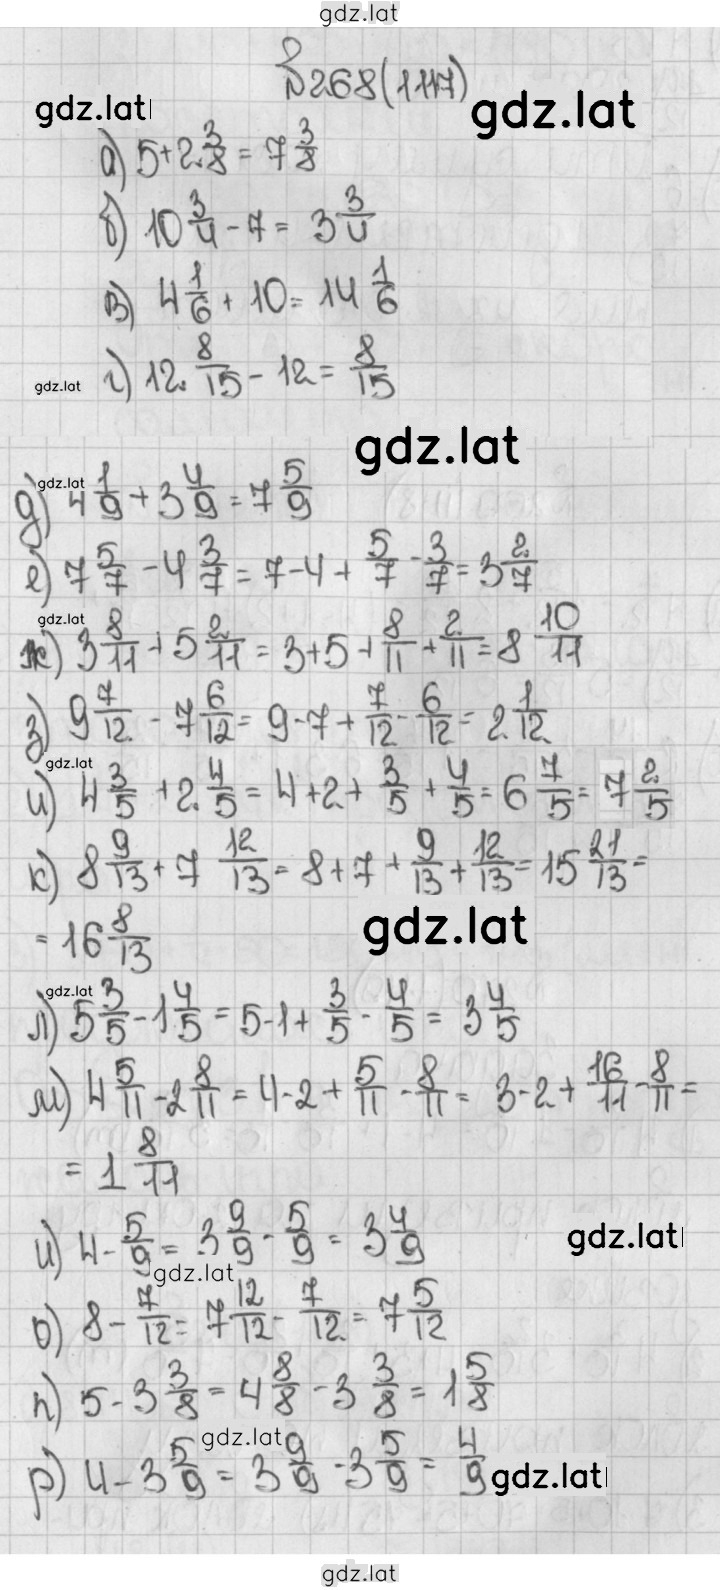 gdz.lat
№268(1117)
gdz.lat gdz.lat
а) 5+2 3/8 = 7 3/8
б) 10 3/4 - 7 = 3 3/4
в) 4 1/6 + 10 = 14 1/6
gdz.lat г) 12 8/15 - 12 = 8/15
gdz.lat
gdz.lat
д) 4 1/9 + 3 4/9 = 7 5/9
е) 7 5/7 - 4 3/7 = 7-4 + 5/7 - 3/7 = 3 2/7
gdz.lat
ж) 3 8/11 + 5 2/11 = 3+5+ 8/11 + 2/11 = 8 10/11
з) 9 7/12 - 7 6/12 = 9-7+ 7/12 - 6/12 = 2 1/12
gdz.lat
и) 4 3/5 + 2 4/5 = 4+2+ 3/5 + 4/5 = 6 7/5 = 7 2/5
к) 8 9/13 + 7 12/13 = 8+7+ 9/13 + 12/13 = 15 21/13 =
= 16 8/13
gdz.lat
gdz.lat
л) 5 3/5 - 1 4/5 = 5-1+ 3/5 - 4/5 = 3 4/5
м) 4 5/11 - 2 8/11 = 4-2+ 5/11 - 8/11 = 3-2+ 16/11 - 8/11 =
= 1 8/11
и) 4 - 5/9 = 3 9/9 - 5/9 = 3 4/9
gdz.lat
gdz.lat
о) 8 - 7/12 = 7 12/12 - 7/12 = 7 5/12
п) 5 - 3 3/8 = 4 8/8 - 3 3/8 = 1 5/8
gdz.lat
р) 4 - 3 5/9 = 3 9/9 - 3 5/9 = 4/9
gdz.lat
gdz.lat